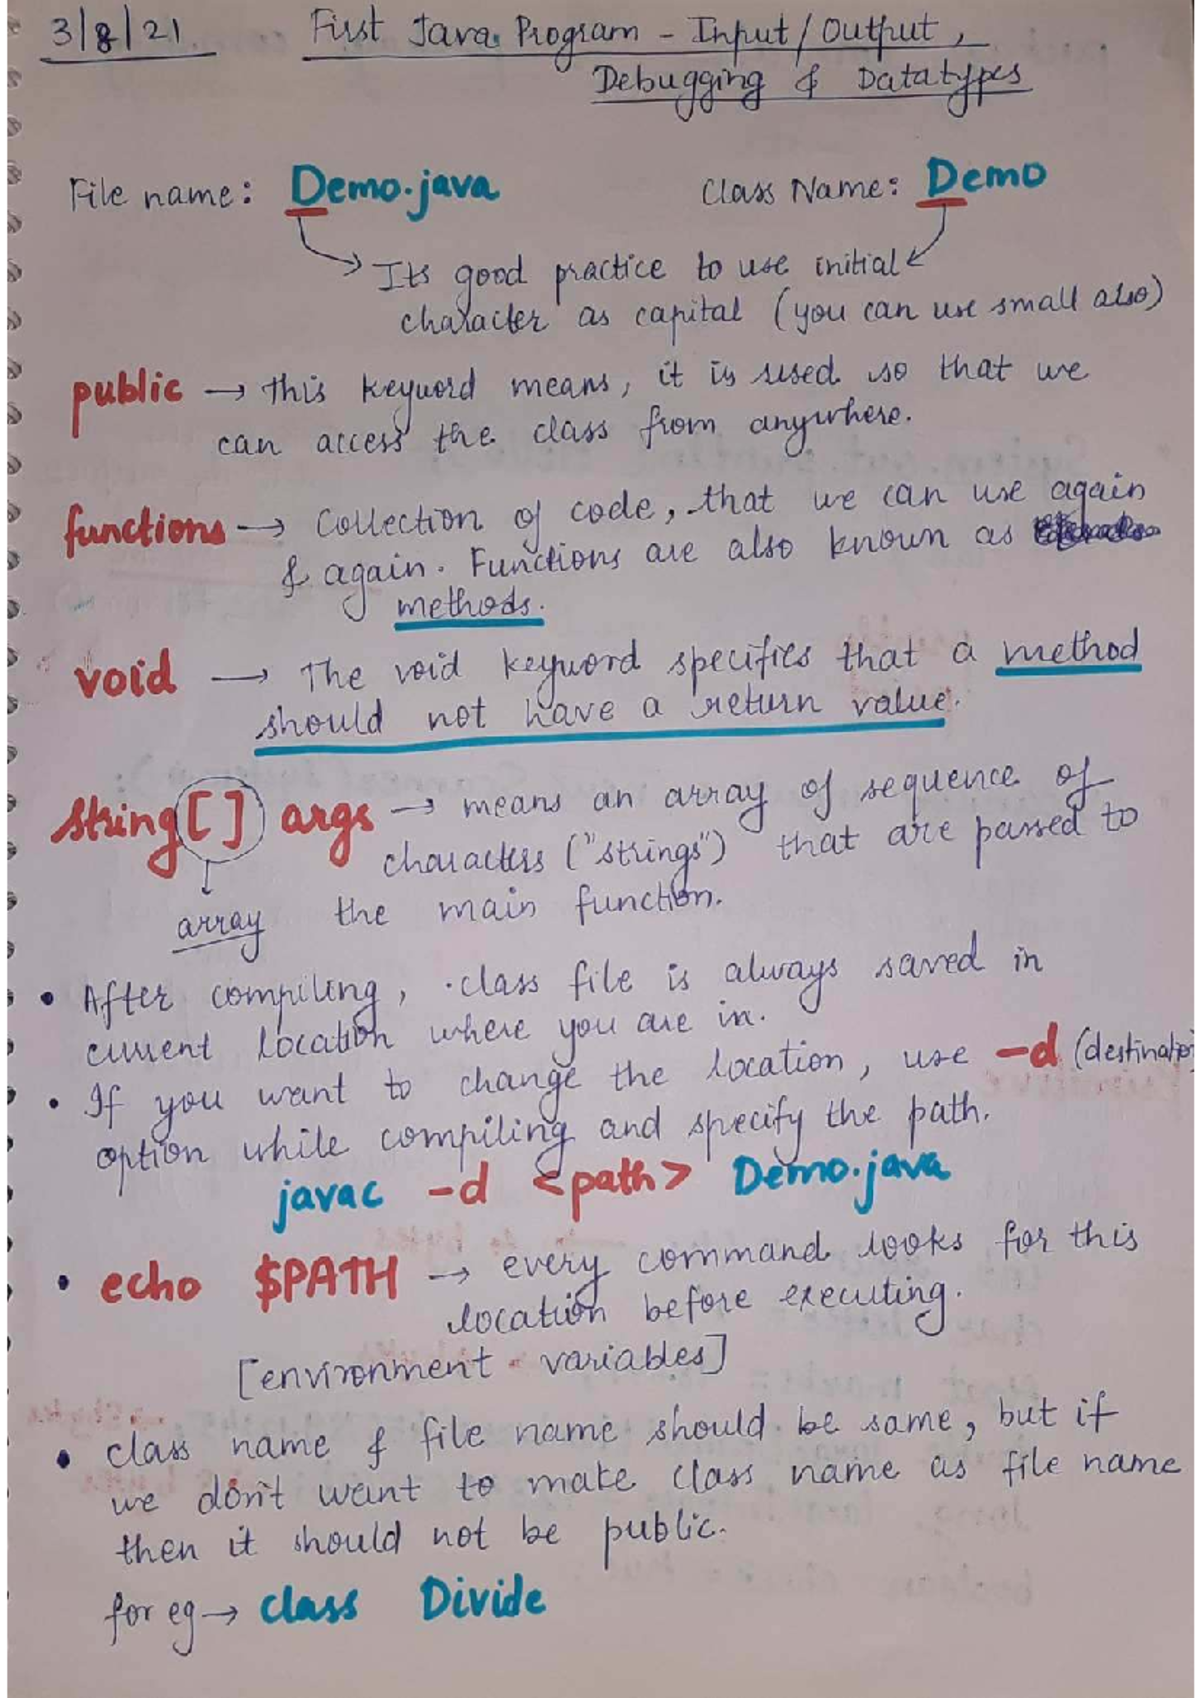 3/8/21 First Java Program - Input/Output,
Debugging & Datatypes
File name: Demo.java Class Name: Demo
Its good practice to use initial
character as capital (you can use small also)
public → this keyword means, it is used so that we
can access the class from anywhere.
functions → Collection of code, that we can use again
& again. Functions are also known as
methods.
void → The void keyword specifies that a method
should not have a return value.
string[] args → means an array of sequence of
characters ("strings") that are passed to
array the main function.
• After compiling, .class file is always saved in
current location where you are in.
• If you want to change the location, use -d (destination
option while compiling and specify the path.
javac -d <path> Demo.java
• echo $PATH → every command looks for this
location before executing.
[environment variables]
• class name & file name should be same, but if
we don't want to make class name as file name
then it should not be public.
for eg → class Divide